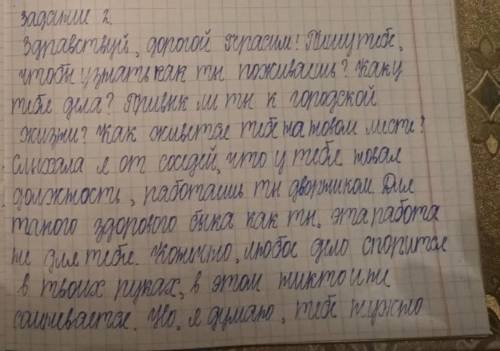 Задание 2.
Здравствуй, дорогой Герасим! Пишу тебе,
чтобы узнать как ты поживаешь? Как у
тебя дела? Привык ли ты к городской
жизни? Как живётся тебе на новом месте?
Слыхала я от соседей, что у тебя новая
должность, работаешь ты дворником. Для
такого здорового быка как ты, эта работа
не для тебя. Конечно, любое дело спорится
в твоих руках, в этом никто и не
сомневается. Но, я думаю, тебе нужно